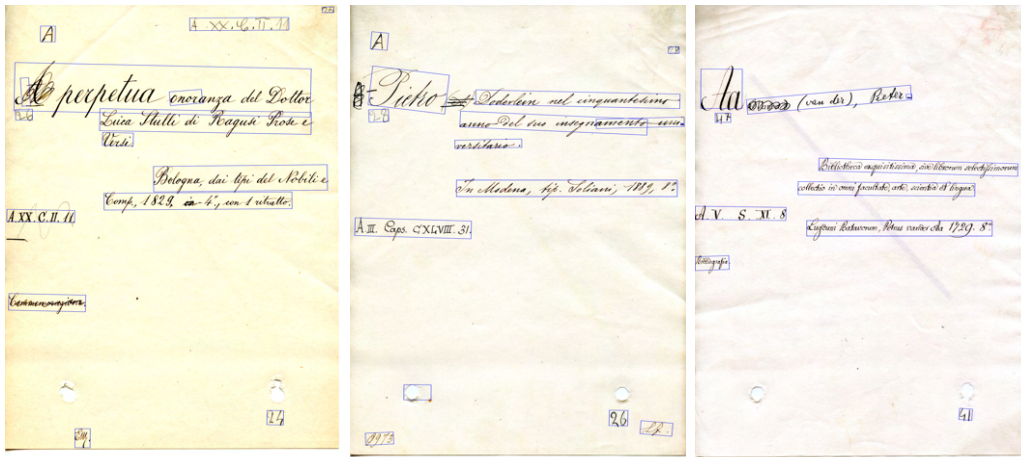 A
A XX. C. II. 11
A perpetua onoranza del Dottor
26
Luca Stulli di Ragusi Prose e
Versi
Bologna, dai tipi del Nobili e
Comp., 1829, in 4°, con 1 ritratto.
A. XX. C. II. 11
Commemorazione.
24
A
Pietro Doderlein nel cinquantesimo
28
anno del suo insegnamento uni-
versitario.
In Modena, tip. Soliani, 1889, 8°
A. III. Caps. CXLVIII. 31.
26
9973
Aa (van der), Peter.
47
Bibliotheca exquisitissima, sive librorum selectissimorum
collectio in omni facultate, arte, scientia et lingua.
A. V. S. XI. 8
Lugduni Batavorum, Petrus vander Aa 1729. 8°
Bibliografia.
41